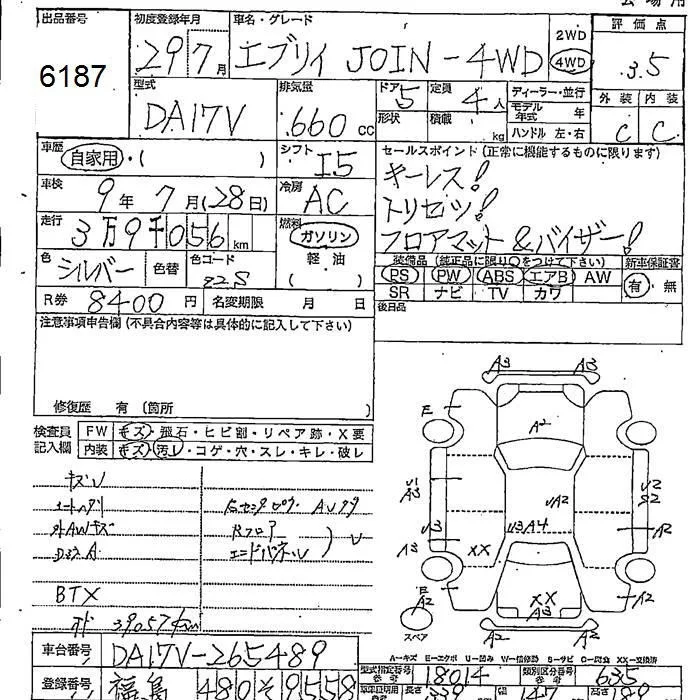 会場用
出品番号 初度登録年月 車名・グレード 2WD 評価点
6187 29 7月 エブリイ JOIN-4WD 4WD 3.5
型式 排気量 ドア 5 定員 4人 ディーラー・並行 外装 内装
DA17V 660 cc 形状 積載 kg モデル年式 年 C C
ハンドル 左・右
車歴 自家用・( ) シフト I5 セールスポイント(正常に機能するものに限ります)
車検 9年 7月(28日) 冷房 AC キーレス!
トリセツ!
走行 3万9千056km 燃料 ガソリン フロアマット&バイザー!
軽油
( )
色 シルバー 色替 色コード Z2S
装備品(純正品に限り○をつけて下さい) 新車保証書
PS PW ABS エアB AW 有・無
SR ナビ TV カワ
R券 8400円 名変期限 月 日 後日品
注意事項申告欄(不具合内容等は具体的に記入して下さい)
修復歴 有 (箇所 )
検査員記入欄 FW キズ・飛石・ヒビ割・リペア跡・X要
内装 キズ・汚レ・コゲ・穴・スレ・キレ・破レ
キズU
外AWキズ
Rフロア
エンドパネル U
BTX
39057km
A3 A3
E A2
U1 A3 UA2 U2 S2
U3 U3A4 A2
A3 XX
E A2 XX A3 A2
スペア A2 A2
A-キズ E-エクボ U-凹み W-修修跡 S-サビ C-腐食 XX-交換済
車台番号 DA17V-265489 型式指定番号 18014 類別区分番号 635
登録番号 福島 480 そ 9558